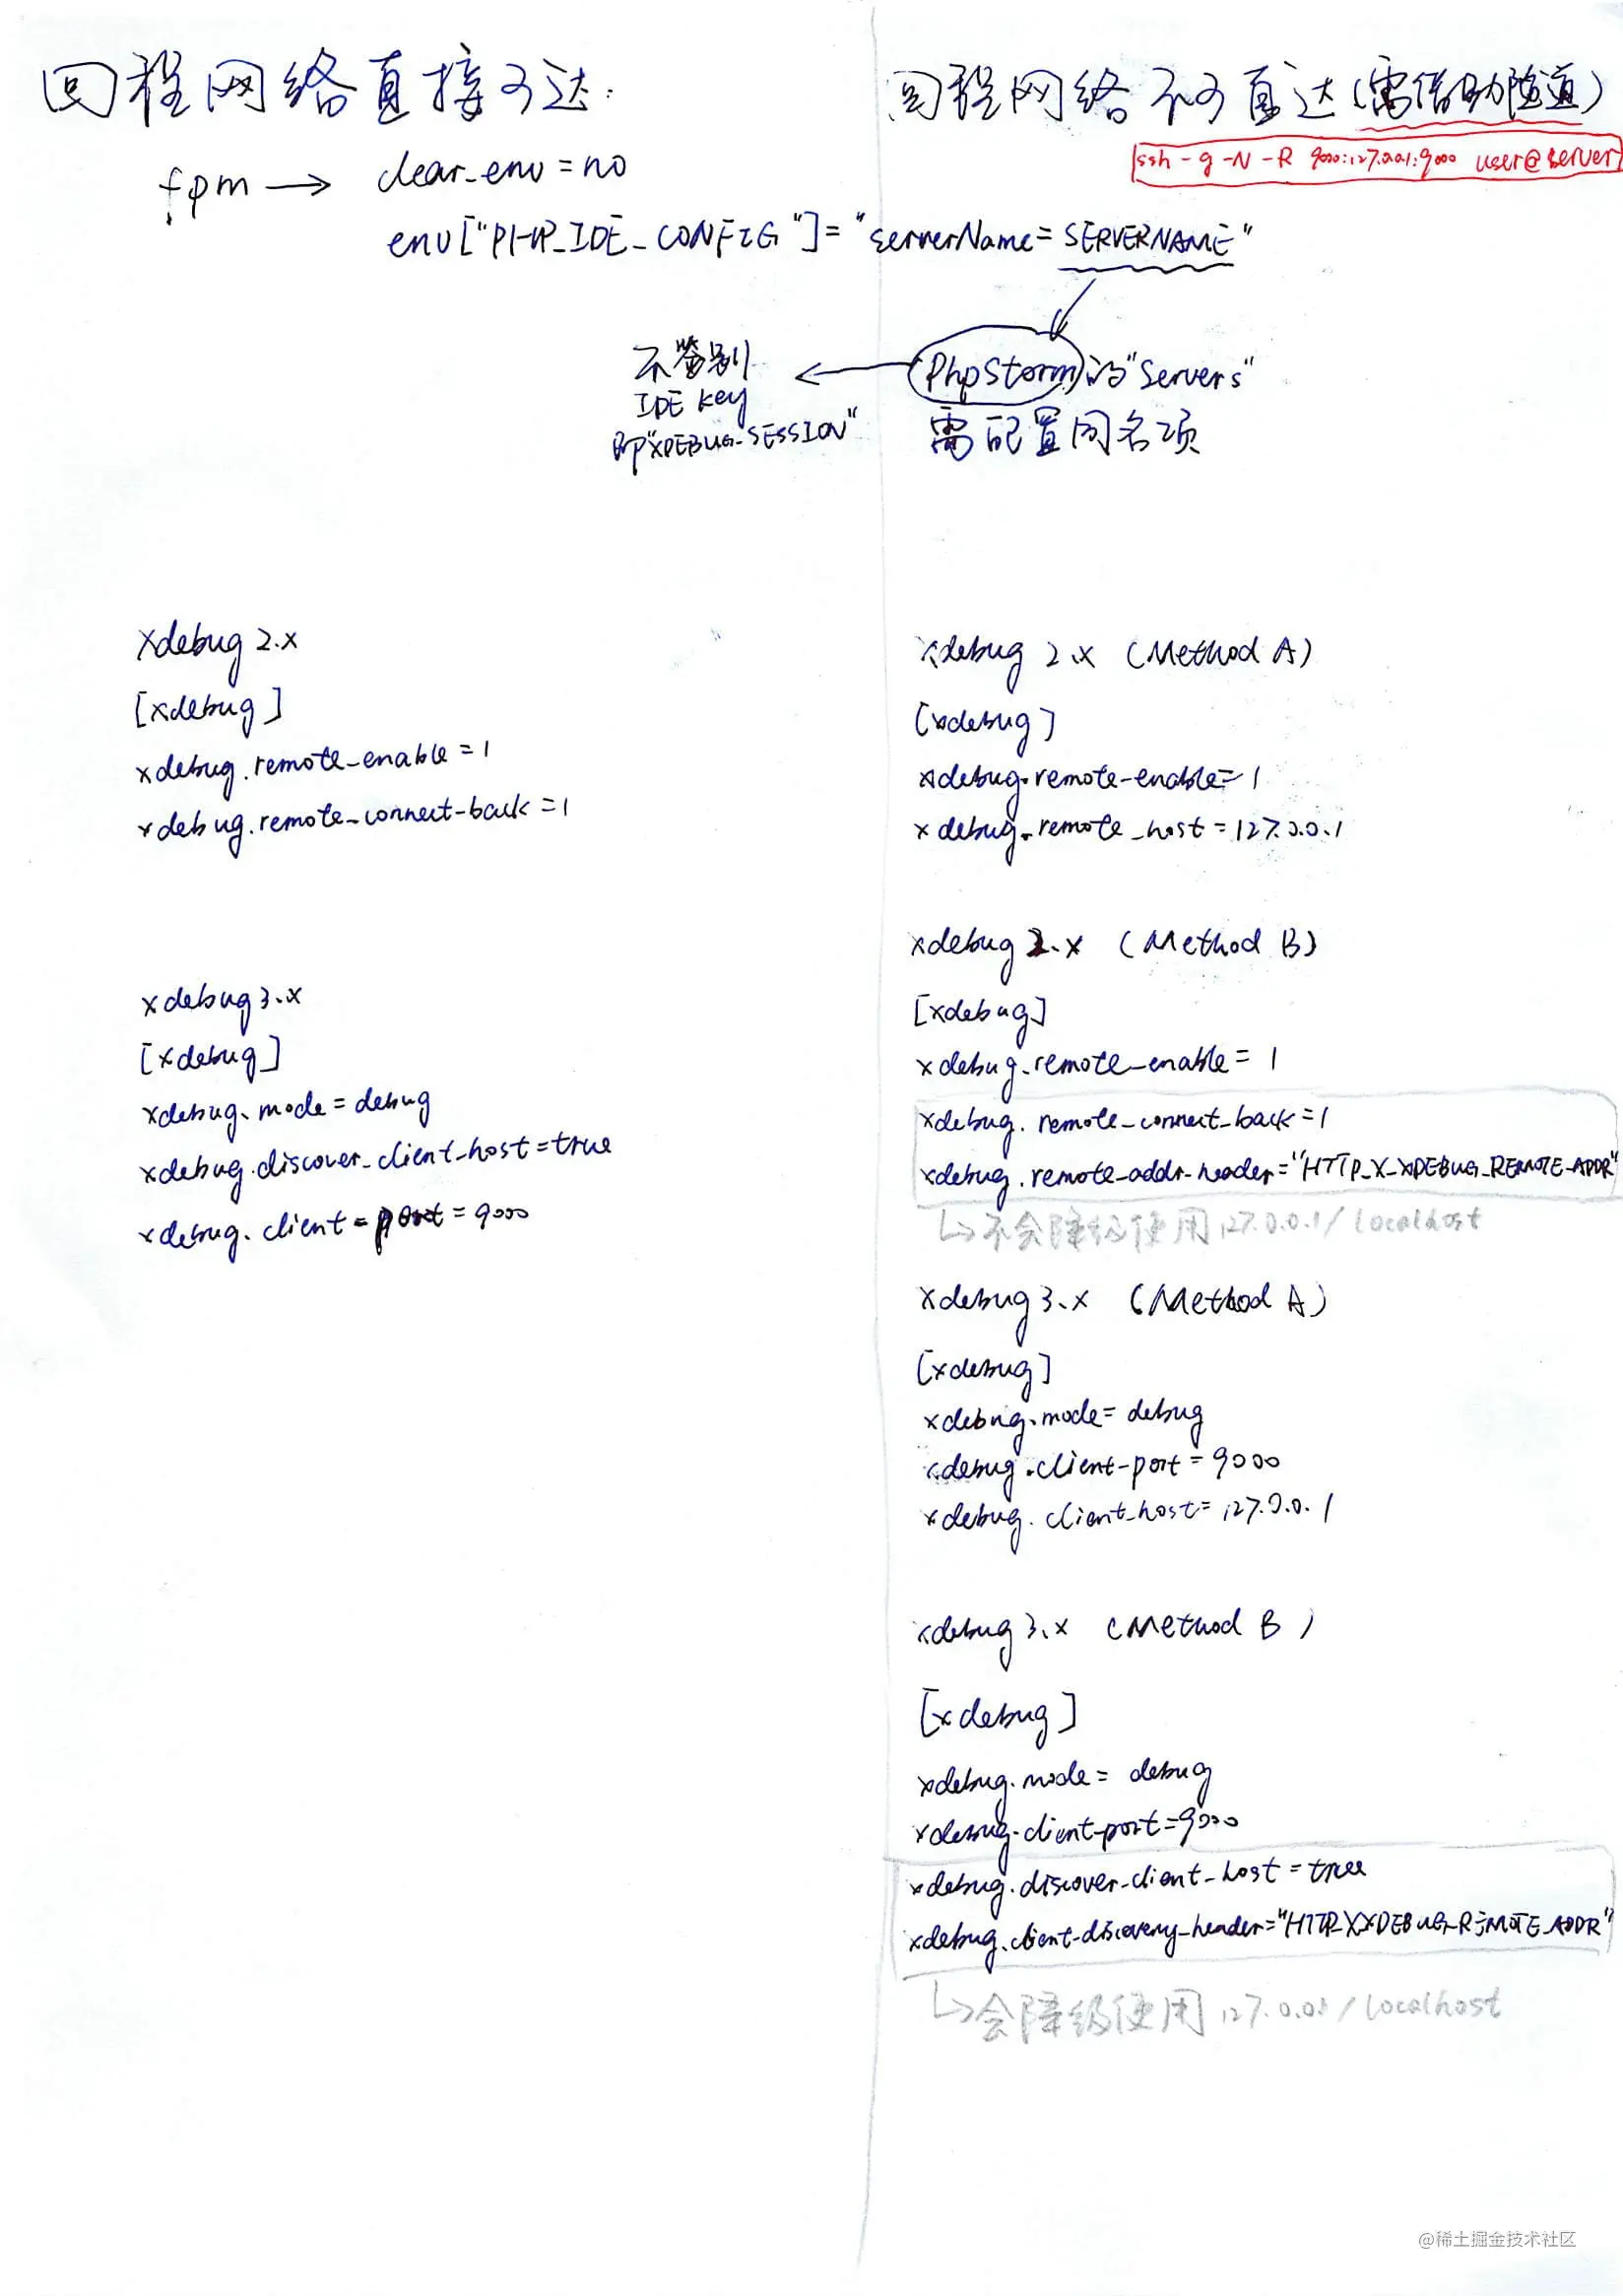 回程网络直接可达:
回程网络不可直达(需借助隧道)
ssh -g -N -R 9000:127.0.0.1:9000 user@server
fpm → clear_env = no
env["PHP_IDE_CONFIG"]="serverName=SERVERNAME"
PhpStorm的"Servers"
需配置同名项
不鉴别
IDE key
即"XDEBUG_SESSION"
xdebug 2.x
[xdebug]
xdebug.remote_enable=1
xdebug.remote_connect_back=1
xdebug 3.x
[xdebug]
xdebug.mode=debug
xdebug.discover_client_host=true
xdebug.client_port=9000
xdebug 2.x (Method A)
[xdebug]
xdebug.remote_enable=1
xdebug.remote_host=127.0.0.1
xdebug 2.x (Method B)
[xdebug]
xdebug.remote_enable=1
xdebug.remote_connect_back=1
xdebug.remote_addr_header="HTTP_X_XDEBUG_REMOTE_ADDR"
↳不会降级使用127.0.0.1/localhost
xdebug 3.x (Method A)
[xdebug]
xdebug.mode=debug
xdebug.client_port=9000
xdebug.client_host=127.0.0.1
xdebug 3.x (Method B)
[xdebug]
xdebug.mode=debug
xdebug.client_port=9000
xdebug.discover_client_host=true
xdebug.client_discovery_header="HTTP_X_XDEBUG_REMOTE_ADDR"
↳会降级使用127.0.0.1/localhost
@稀土掘金技术社区